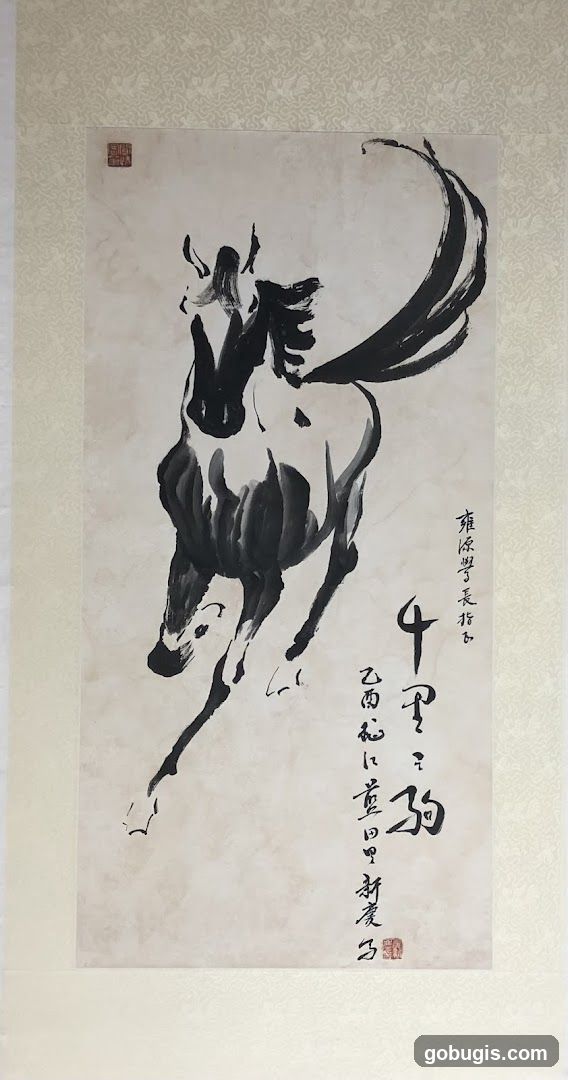 雍源學長指正
千里之駒
乙酉 江蓝田里新慶写
gobugis.com